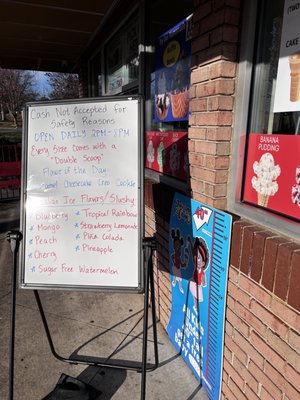 Cash Not Accepted for
Safety Reasons
OPEN DAILY 2PM-8PM
Every Size Comes with a
"Double Scoop"
Flavor of the Day
Cheesecake Oreo Cookie
Italian Ice Flavors/Slushy
* Blueberry
* Mango
* Peach
* Cherry
* Sugar Free Watermelon
* Tropical Rainbow
* Strawberry Lemonade
* Piña Colada
* Pineapple
CAKE
BANANA
PUDDING
40"